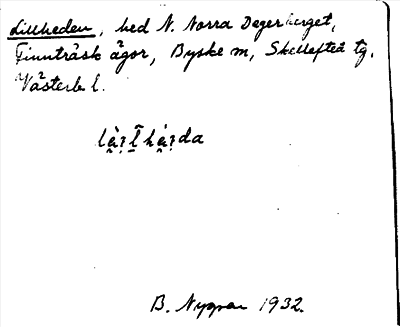 Lillheden, hed N. Norra Degerberget,
Finnträsk ägor, Byske sn, Skellefteå tg.
Västerb l.
B. Nygren 1932.